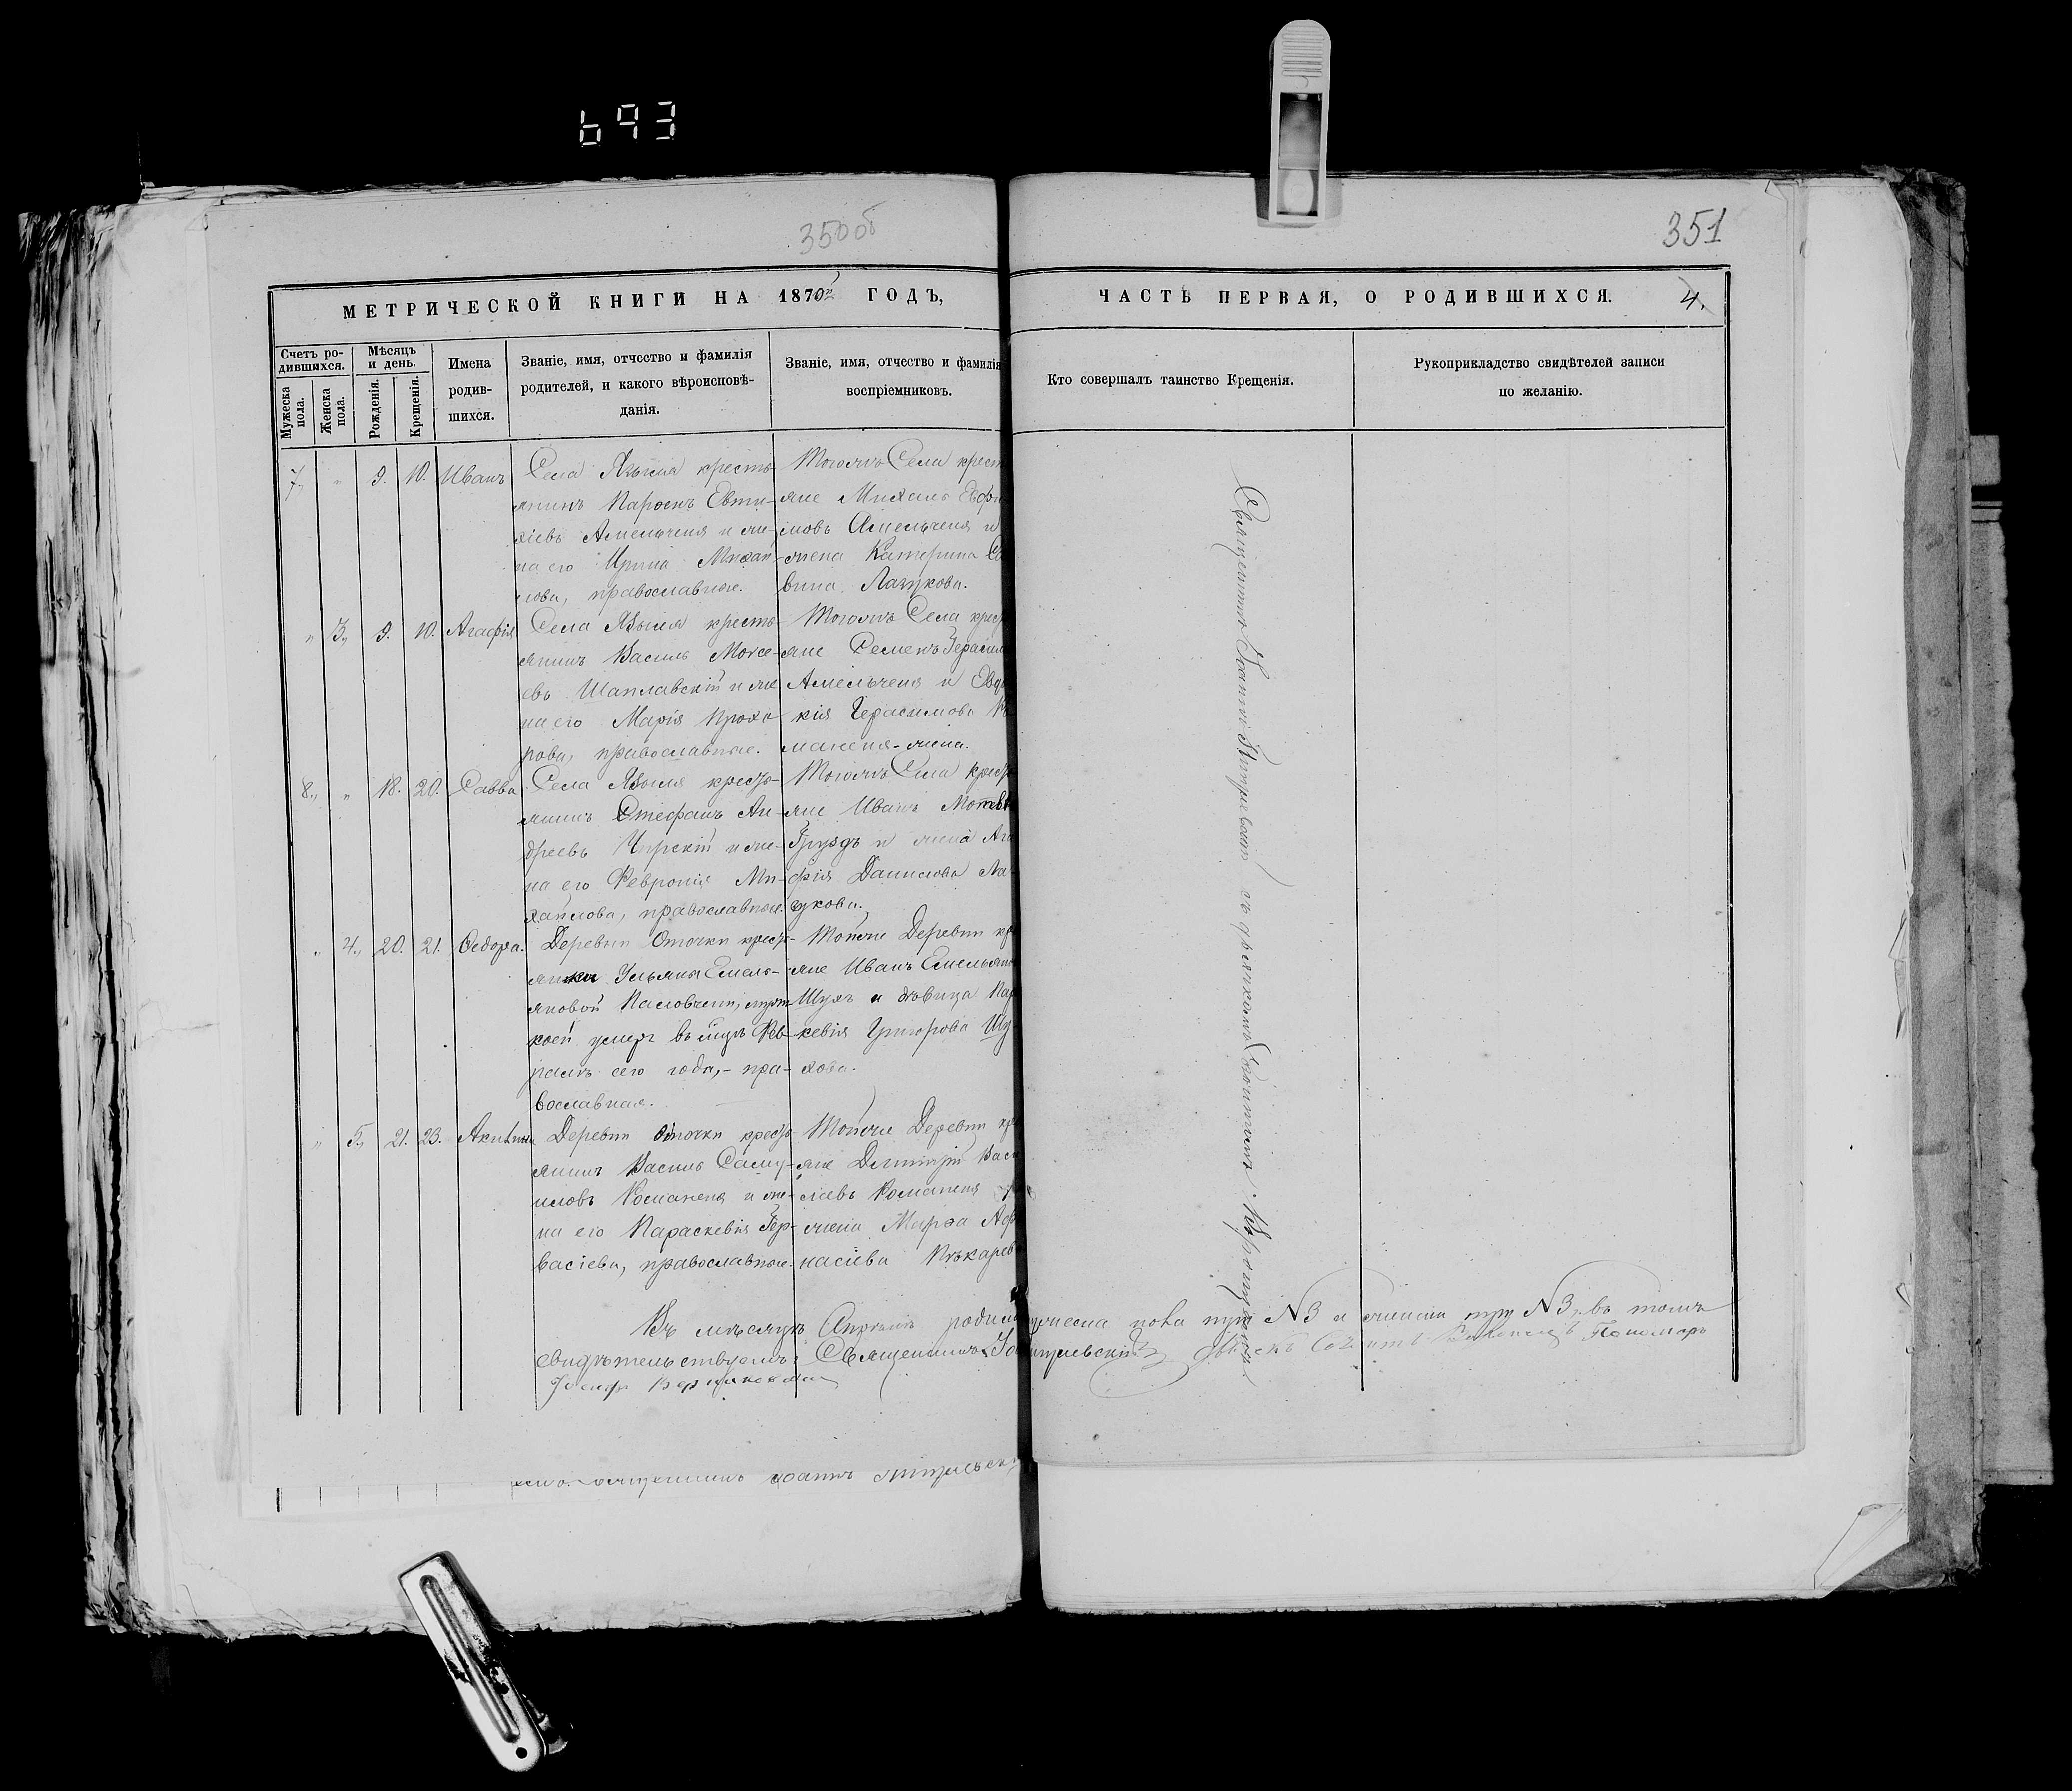 693
350 об
351
МЕТРИЧЕСКОЙ КНИГИ НА 1870й ГОДЪ,
ЧАСТЬ ПЕРВАЯ, О РОДИВШИХСЯ.
4.
Счетъ ро-
дившихся.
Мужеска пола.
Женска пола.
Мѣсяцъ
и день.
Рожденія.
Крещенія.
Имена
родив-
шихся.
Званіе, имя, отчество и фамилія
родителей, и какого вѣроисповѣ-
данія.
Званіе, имя, отчество и фамилія
воспріемниковъ.
Кто совершалъ таинство Крещенія.
Рукоприкладство свидѣтелей записи
по желанію.
7,, " 9. 10. Иванъ
Села Языля кресть-
янинъ Евти-
хіевъ Амельченя и же-
на его Ирина Михаи-
лова, православные.
Тогожъ Села крест
яне Михаилъ
Амельченя и
жена Катерина
вина Лазукова.
" 3,, 9. 10. Агафія
Села Языля кресть-
янинъ Василь Моисе-
евъ Шаплавскій и же
на его Марія Прохо
рова, православные.
Тогожъ Села
яне Семенъ Герасим
Амельченя и Евдо
кія Герасимова
маненя-жена.
8,, " 18. 20. Савва
Села Языля кресть-
янинъ Стефанъ Ан-
дреевъ Чирскій и же-
на его Февронія Ми-
хаилова, православные.
Тогожъ Села
яне Иванъ
Груздъ и жена Ага
фія Данилова Ла
зукова.
" 4,, 20. 21. Ѳедора.
Деревни Оточки кресть-
янки Ульяны Емель-
яновой мужъ
коей умеръ въ мцѣ Фев-
ралѣ сего года,- пра-
вославная.
Тойже Деревни кр
яне Иванъ Емельяно
Шухъ и дѣвица Пар
кевія Григорова Шу-
хова.
" 5,, 21. 23. Акилина
Деревни Оточки кресть-
янинъ Василь Саму-
иловъ Романеня и же-
на его Параскевія Гер-
васіева, православные.
Тойже Деревни кр
яне Димитрій Васи
ліевъ Романеня
жена Марѳа Аѳа
насіева
Священникъ Іоаннъ съ дьячкомъ
Въ мѣсяцѣ Апрѣлѣ родил мужеска пола три №3 и женска три №3,, въ томъ
свидѣтельствуемъ: Священникъ
Іосифъ Пономарь